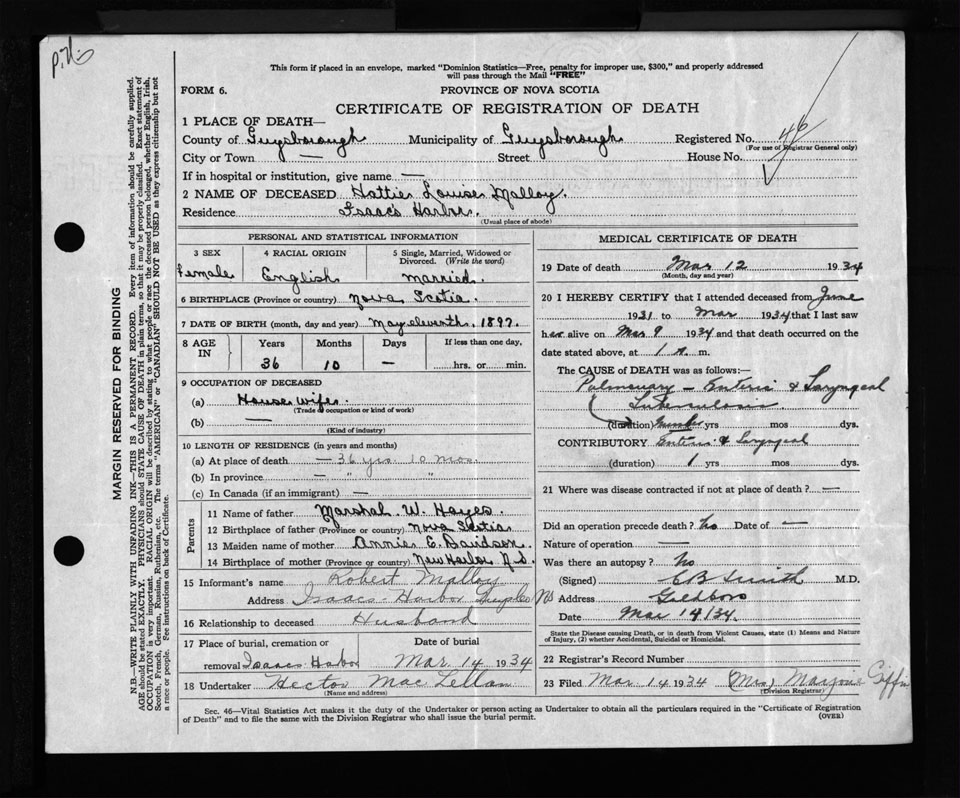 P.N.
This form if placed in an envelope, marked "Dominion Statistics—Free, penalty for improper use, $300," and properly addressed
will pass through the Mail "FREE"
FORM 6. PROVINCE OF NOVA SCOTIA
CERTIFICATE OF REGISTRATION OF DEATH
1 PLACE OF DEATH—
County of Guysborough Municipality of Guysborough Registered No. 46
(For use of Registrar General only)
City or Town — Street House No.
If in hospital or institution, give name —
2 NAME OF DECEASED Hattie Louise Malloy.
Residence Isaac's Harbor.
(Usual place of abode)
PERSONAL AND STATISTICAL INFORMATION
3 SEX 4 RACIAL ORIGIN 5 Single, Married, Widowed or
Divorced. (Write the word)
Female English married.
6 BIRTHPLACE (Province or country) Nova Scotia.
7 DATE OF BIRTH (month, day and year) May eleventh, 1897.
8 AGE IN Years Months Days If less than one day,
36 10 — hrs. or min.
9 OCCUPATION OF DECEASED
(a) House wife.
(Trade or occupation or kind of work)
(b) —
(Kind of industry)
10 LENGTH OF RESIDENCE (in years and months)
(a) At place of death — 36 yrs. 10 mos.
(b) In province — " "
(c) In Canada (if an immigrant) —
Parents
11 Name of father Marshal W. Hayes.
12 Birthplace of father (Province or country) Nova Scotia
13 Maiden name of mother Annie E. Davidson.
14 Birthplace of mother (Province or country) New Harbor N.S.
15 Informant's name Robert Malloy
Address Isaacs Harbor Guys Co NS
16 Relationship to deceased Husband
17 Place of burial, cremation or Date of burial
removal Isaacs Harbor Mar 14 1934
18 Undertaker Hector Mac Lellan
(Name and address)
MEDICAL CERTIFICATE OF DEATH
19 Date of death Mar 12 1934
(Month, day and year)
20 I HEREBY CERTIFY that I attended deceased from June
1931 to Mar 1934 that I last saw
her alive on Mar 9 1934 and that death occurred on the
date stated above, at 1 a. m.
The CAUSE of DEATH was as follows:—
Pulmonary – Enteric & Laryngeal
Tuberculosis.
(duration) yrs mos dys.
CONTRIBUTORY Enteric & Laryngeal
(duration) 1 yrs mos dys.
21 Where was disease contracted if not at place of death? —
Did an operation precede death? No Date of —
Nature of operation —
Was there an autopsy? No
(Signed) E B Smith M.D.
Address Goldboro
Date Mar 14/34.
State the Disease causing Death, or in death from Violent Causes, state (1) Means and Nature
of Injury, (2) whether Accidental, Suicidal or Homicidal.
22 Registrar's Record Number
23 Filed Mar 14 1934 (Mrs) Giffin
(Division Registrar)
Sec. 46—Vital Statistics Act makes it the duty of the Undertaker or person acting as Undertaker to obtain all the particulars required in the "Certificate of Registration
of Death" and to file the same with the Division Registrar who shall issue the burial permit. (OVER)
MARGIN RESERVED FOR BINDING
N.B.—WRITE PLAINLY WITH UNFADING INK—THIS IS A PERMANENT RECORD. Every item of information should be carefully supplied.
AGE should be stated EXACTLY. PHYSICIANS should STATE CAUSE OF DEATH in plain terms, so that it may be properly classified. Exact statement of
OCCUPATION is very important. RACIAL ORIGIN will be described by stating to what people or race the deceased person belonged, whether English, Irish,
Scotch, French, German, Russian, Ruthenian, etc. The terms "AMERICAN" or "CANADIAN" SHOULD NOT BE USED as they express citizenship but not
a race or people. See instructions on back of Certificate.